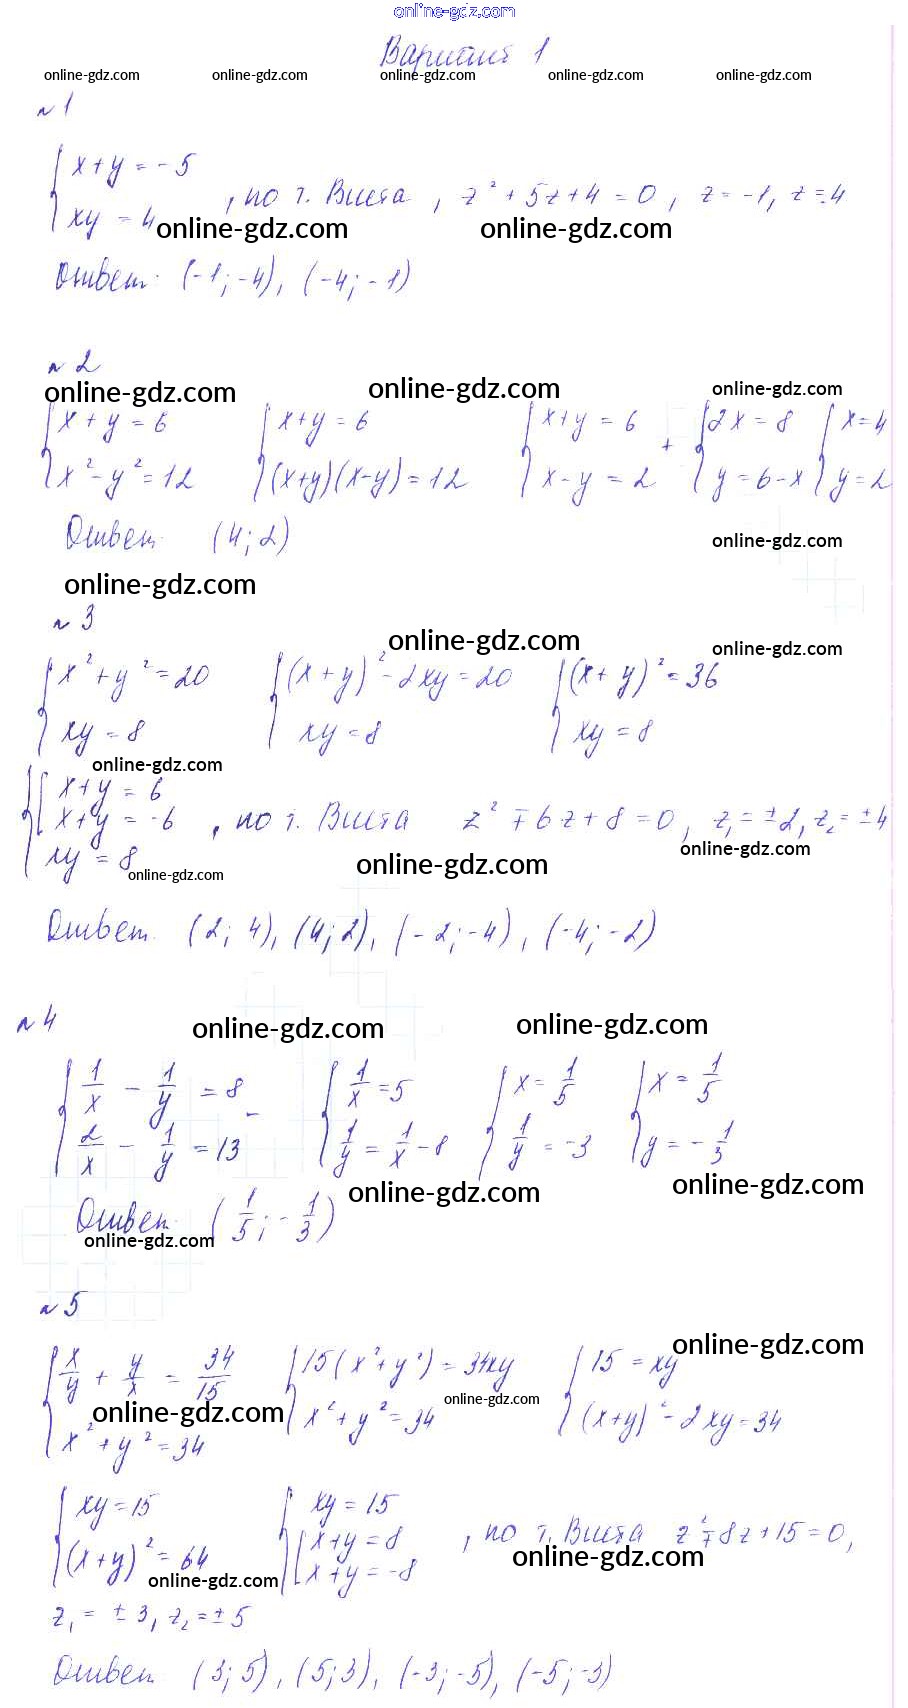 online-gdz.com
Вариант 1
online-gdz.com online-gdz.com online-gdz.com online-gdz.com online-gdz.com
№1
{ x+y = -5
{ xy = 4 , по т. Виета , z² + 5z + 4 = 0 , z = -1, z = -4
online-gdz.com online-gdz.com
Ответ: (-1; -4), (-4; -1)
№2
online-gdz.com online-gdz.com online-gdz.com
{ x + y = 6 { x+y = 6 { x+y = 6 + { 2x = 8 { x = 4
{ x² - y² = 12 { (x+y)(x-y) = 12 { x - y = 2 { y = 6 - x { y = 2
Ответ (4; 2)
online-gdz.com
online-gdz.com
№3
online-gdz.com online-gdz.com
{ x² + y² = 20 { (x + y)² - 2xy = 20 { (x + y)² = 36
{ xy = 8 { xy = 8 { xy = 8
online-gdz.com
{ [ x+y = 6
{ [ x+y = -6 , по т. Виета z² ∓ 6z + 8 = 0, z₁ = ±2, z₂ = ±4
{ xy = 8
online-gdz.com online-gdz.com online-gdz.com
Ответ (2; 4), (4; 2), (-2; -4), (-4; -2)
№4
online-gdz.com online-gdz.com
{ 1/x - 1/y = 8 - { 1/x = 5 { x = 1/5 { x = 1/5
{ 2/x - 1/y = 13 { 1/y = 1/x - 8 { 1/y = -3 { y = -1/3
online-gdz.com online-gdz.com
Ответ: (1/5; -1/3)
online-gdz.com
№5
online-gdz.com
{ x/y + y/x = 34/15 { 15(x² + y²) = 34xy { 15 = xy
{ x² + y² = 34 { x² + y² = 34 { (x+y)² - 2xy = 34
online-gdz.com online-gdz.com
{ xy = 15 { xy = 15
{ (x+y)² = 64 { [ x+y = 8 , по т. Виета z² ∓ 8z + 15 = 0,
[ x+y = -8
online-gdz.com online-gdz.com
z₁ = ±3, z₂ = ±5
Ответ (3; 5), (5; 3), (-3; -5), (-5; -3)